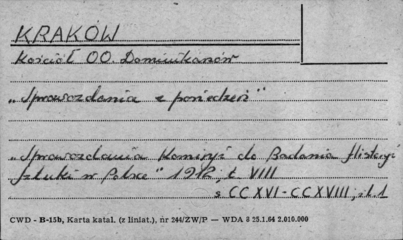 KRAKÓW
Kościół OO. Dominikanów
„Sprawozdania z posiedzeń"
„Sprawozdania Komisyi do Badania Historyi
Sztuki w Polsce" 1912, t. VIII
s CCXVI-CCXVIII, il. 1
CWD - B-15b, Karta katal. (z liniat.), nr 244/ZW/P — WDA 8 25.1.64 2.010.000